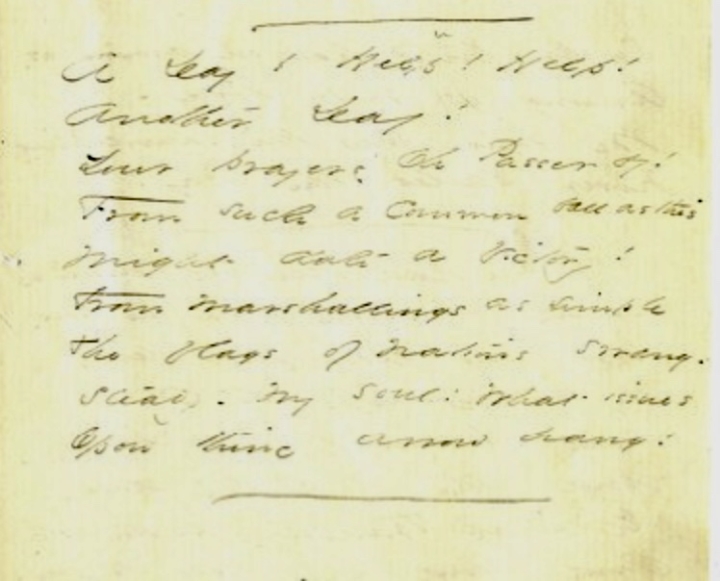 A Day ! Help! Help!
Another Day!
Your prayers, Oh Passer by!
From such a Common ball as this
Might date a Victory!
From marshallings as simple
The flags of nations swang.
Steady - my soul: What issues
Upon thine arrow hang!